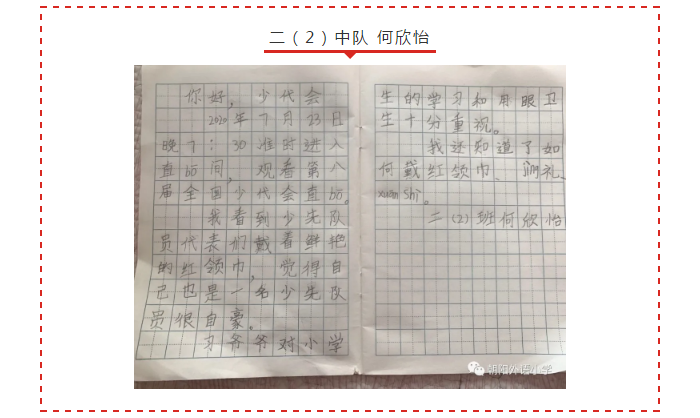 二（2）中队 何欣怡
你好，少代会
2020年7月23日
晚7：30准时进入
直bō间，观看第八
届全国少代会直bō。
我看到少先队
员代表们戴着鲜艳
的红领巾，觉得自
己也是一名少先队
员很自豪。
习爷爷对小学
生的学习和用眼卫
生十分重视。
我还知道了如
何戴红领巾、礼、
xuān shì。
二（2）班何欣怡
朝阳外语小学